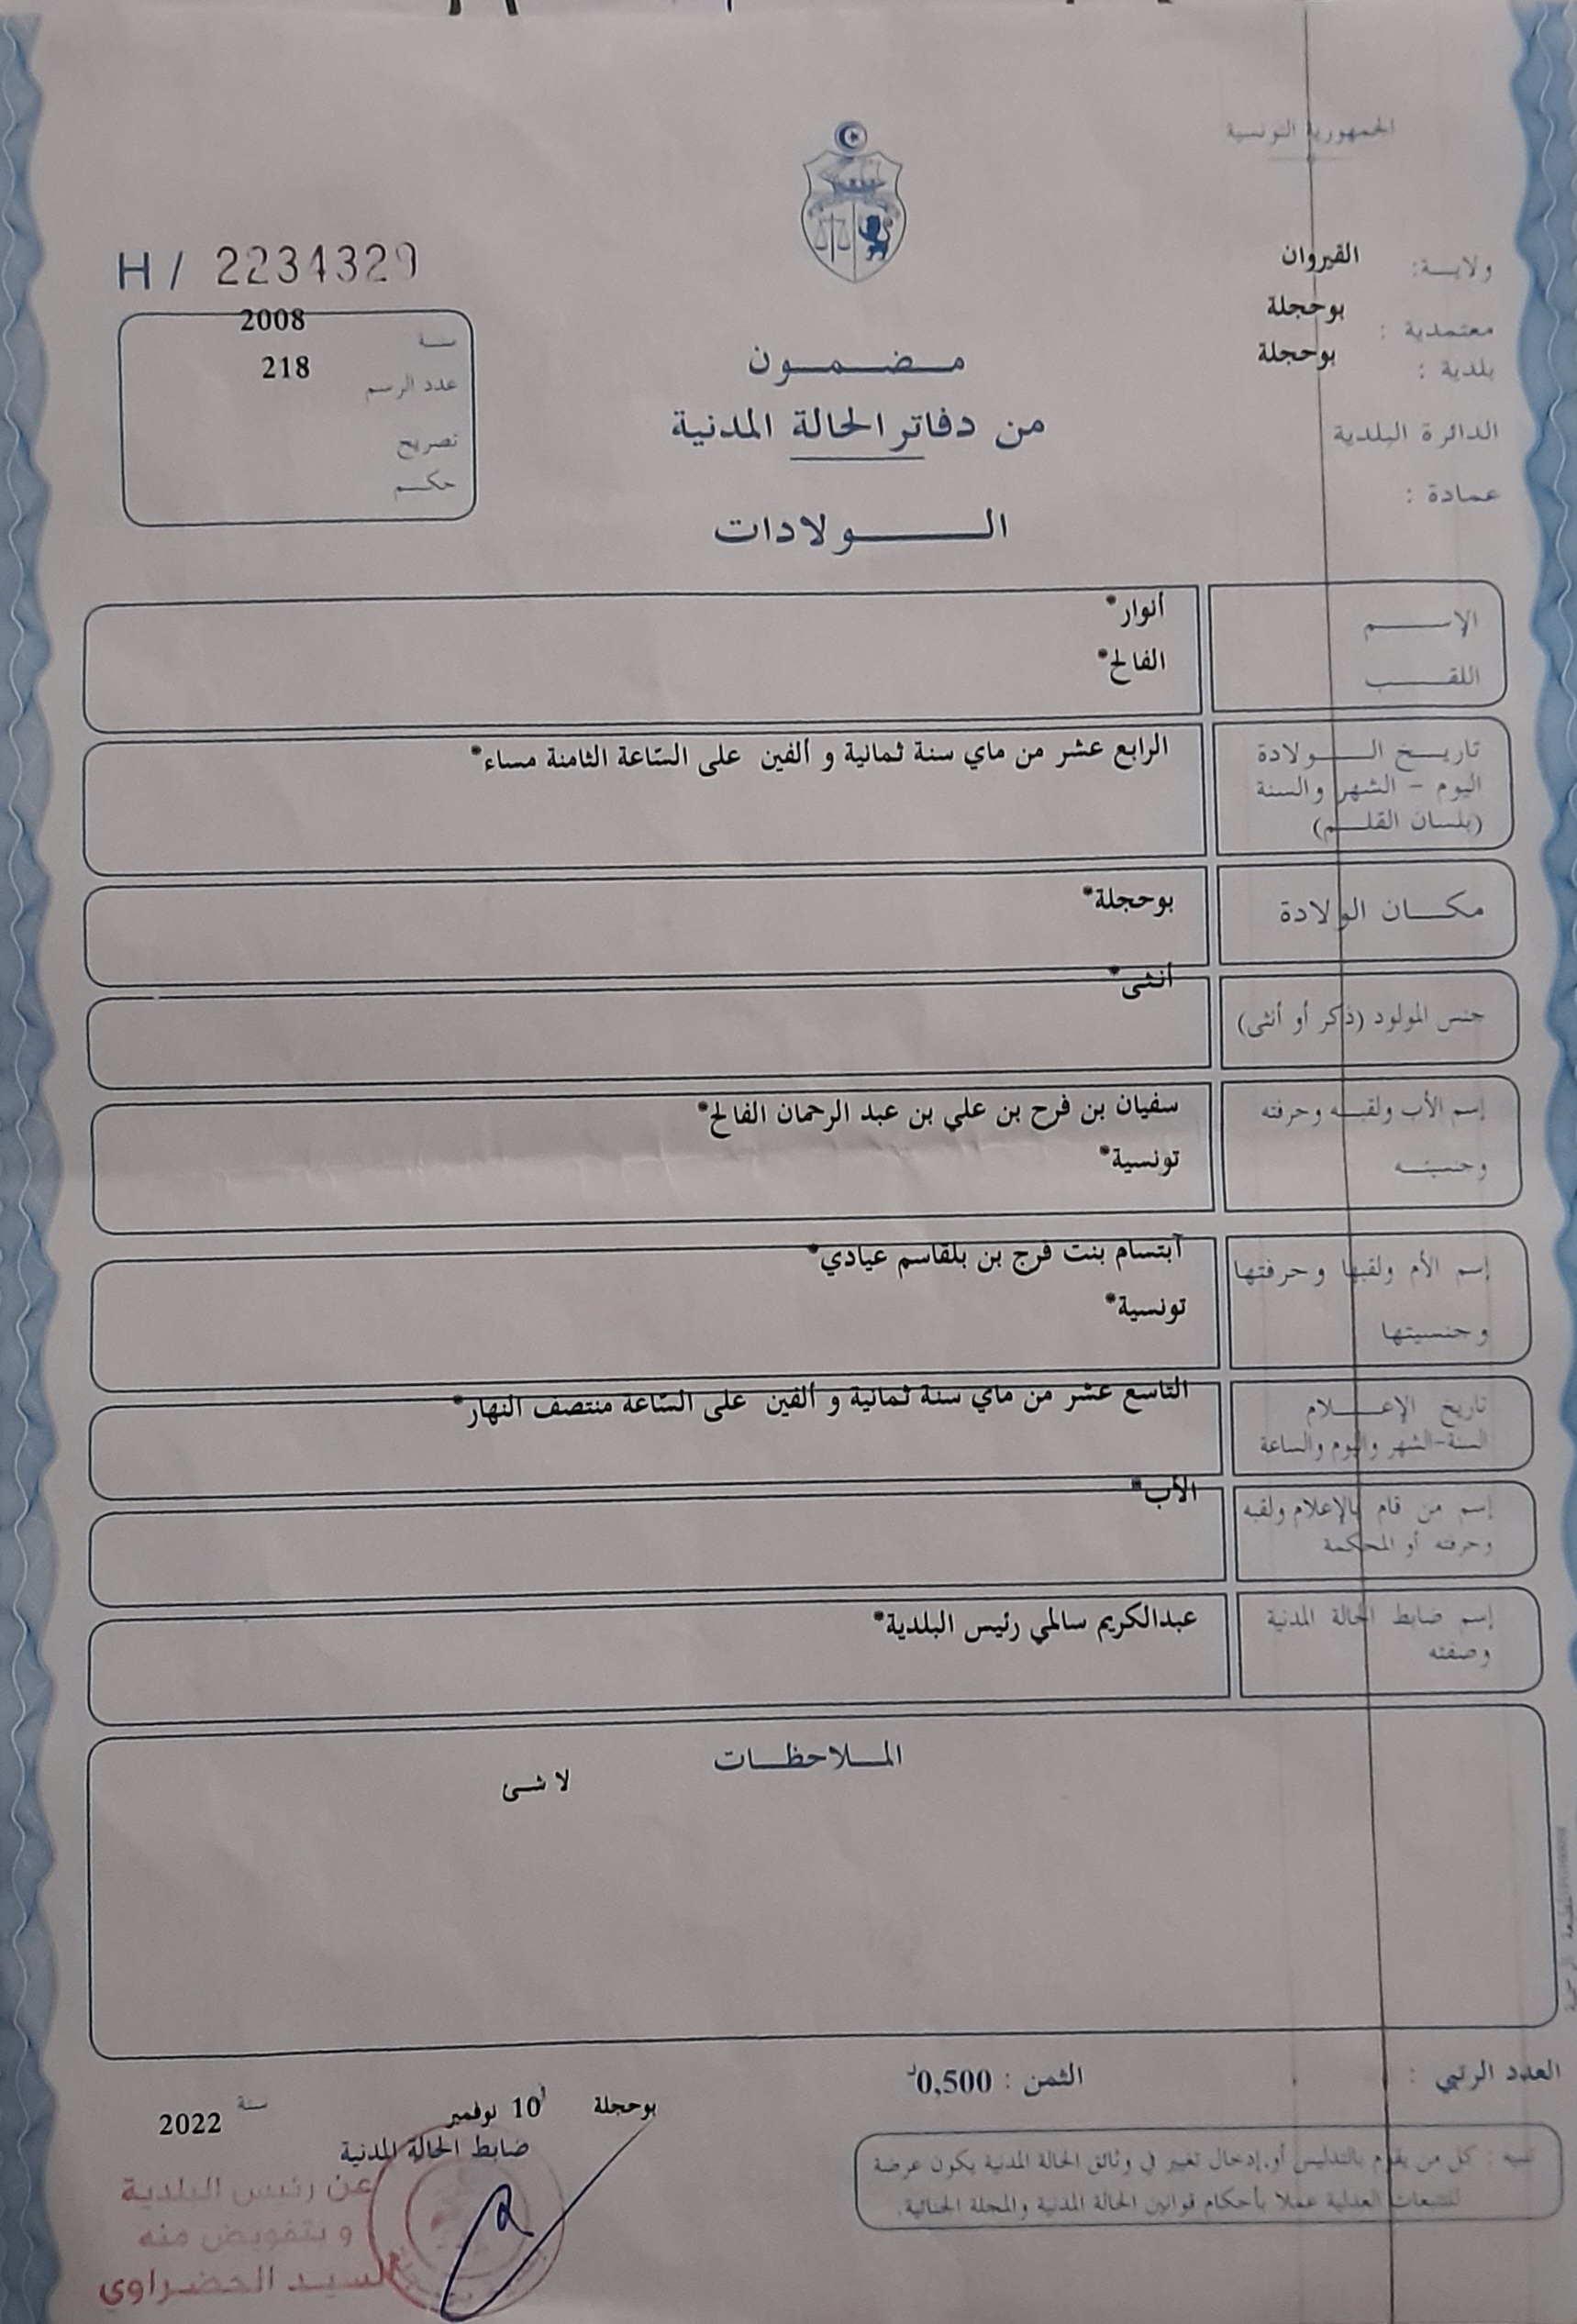 الجمهورية التونسية
ولايـــة: القيروان
معتمدية : بوحجلة
بلدية : بوحجلة
الدائرة البلدية
عمادة :
H / 2234329
سنة 2008
عدد الرسم 218
تصريح
حكم
مضمون
من دفاتر الحالة المدنية
الـــولادات
الإســـم أنوار*
اللقـــب الفالح*
تاريـخ الـــولادة
اليوم - الشهر والسنة
(بلسان القلـم)
الرابع عشر من ماي سنة ثمانية و ألفين على السّاعة الثامنة مساء*
مكـــان الولادة بوحجلة*
جنس المولود (ذكر أو أنثى) أنثى*
إسم الأب ولقبـه وحرفته
وجنسيتـه
سفيان بن فرح بن علي بن عبد الرحمان الفالح*
تونسية*
إسم الأم ولقبها وحرفتها
وجنسيتها
آبتسام بنت فرج بن بلقاسم عيادي*
تونسية*
تاريخ الإعـــلام
السنة-الشهر واليوم والساعة
التاسع عشر من ماي سنة ثمانية و ألفين على السّاعة منتصف النهار*
إسم من قام بالإعلام ولقبه
وحرفته أو المحكمة
الأب*
إسم ضابط الحالة المدنية
وصفته
عبدالكريم سالمي رئيس البلدية*
المـلاحظـات
لا شى
العدد الرتبي :
الثمن : 0,500د
بوحجلة 10 نوفمبر سنة 2022
ضابط الحالة المدنية
عن رئيس البلدية
و بتفويض منه
السيد الخضراوي
تنبيه : كل من يقوم بالتدليس أو إدخال تغيير في وثائق الحالة المدنية يكون عرضة
للتتبعات العدلية عملا بأحكام قوانين الحالة المدنية والمجلة الجنائية.